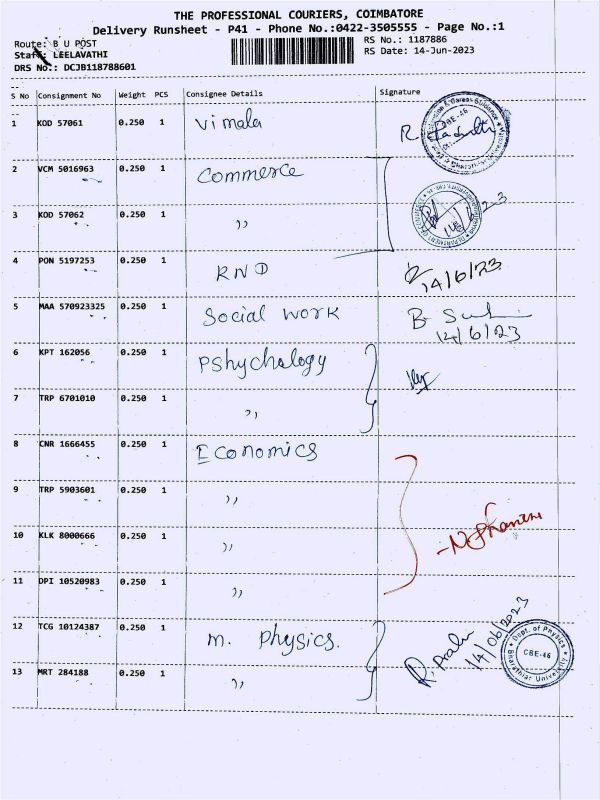 THE PROFESSIONAL COURIERS, COIMBATORE
Delivery Runsheet - P41 - Phone No.:0422-3505555 - Page No.:1
Route: B U POST
Staff: LEELAVATHI
DRS No.: DCJB118788601
RS No.: 1187886
RS Date: 14-Jun-2023
S No Consignment No Weight PCS Consignee Details Signature
1 KOD 57061 0.250 1 Vimala R.
CBE-46
2 VCM 5016963 0.250 1 Commerce
3 KOD 57062 0.250 1 ,,
4 PON 5197253 0.250 1 RND 14/6/23
5 MAA 570923325 0.250 1 Social work B
14/6/23
6 KPT 162056 0.250 1 Pshychology
7 TRP 6701010 0.250 1 ,,
8 CNR 1666455 0.250 1 Economics
9 TRP 5903601 0.250 1 ,,
10 KLK 8000666 0.250 1 ,,
11 DPI 10520983 0.250 1 ,,
12 TCG 10124387 0.250 1 m. Physics. R. Prabu 14/06/2023
Dept. of Physics
CBE-46
Bharathiar University
13 MRT 284188 0.250 1 ,,